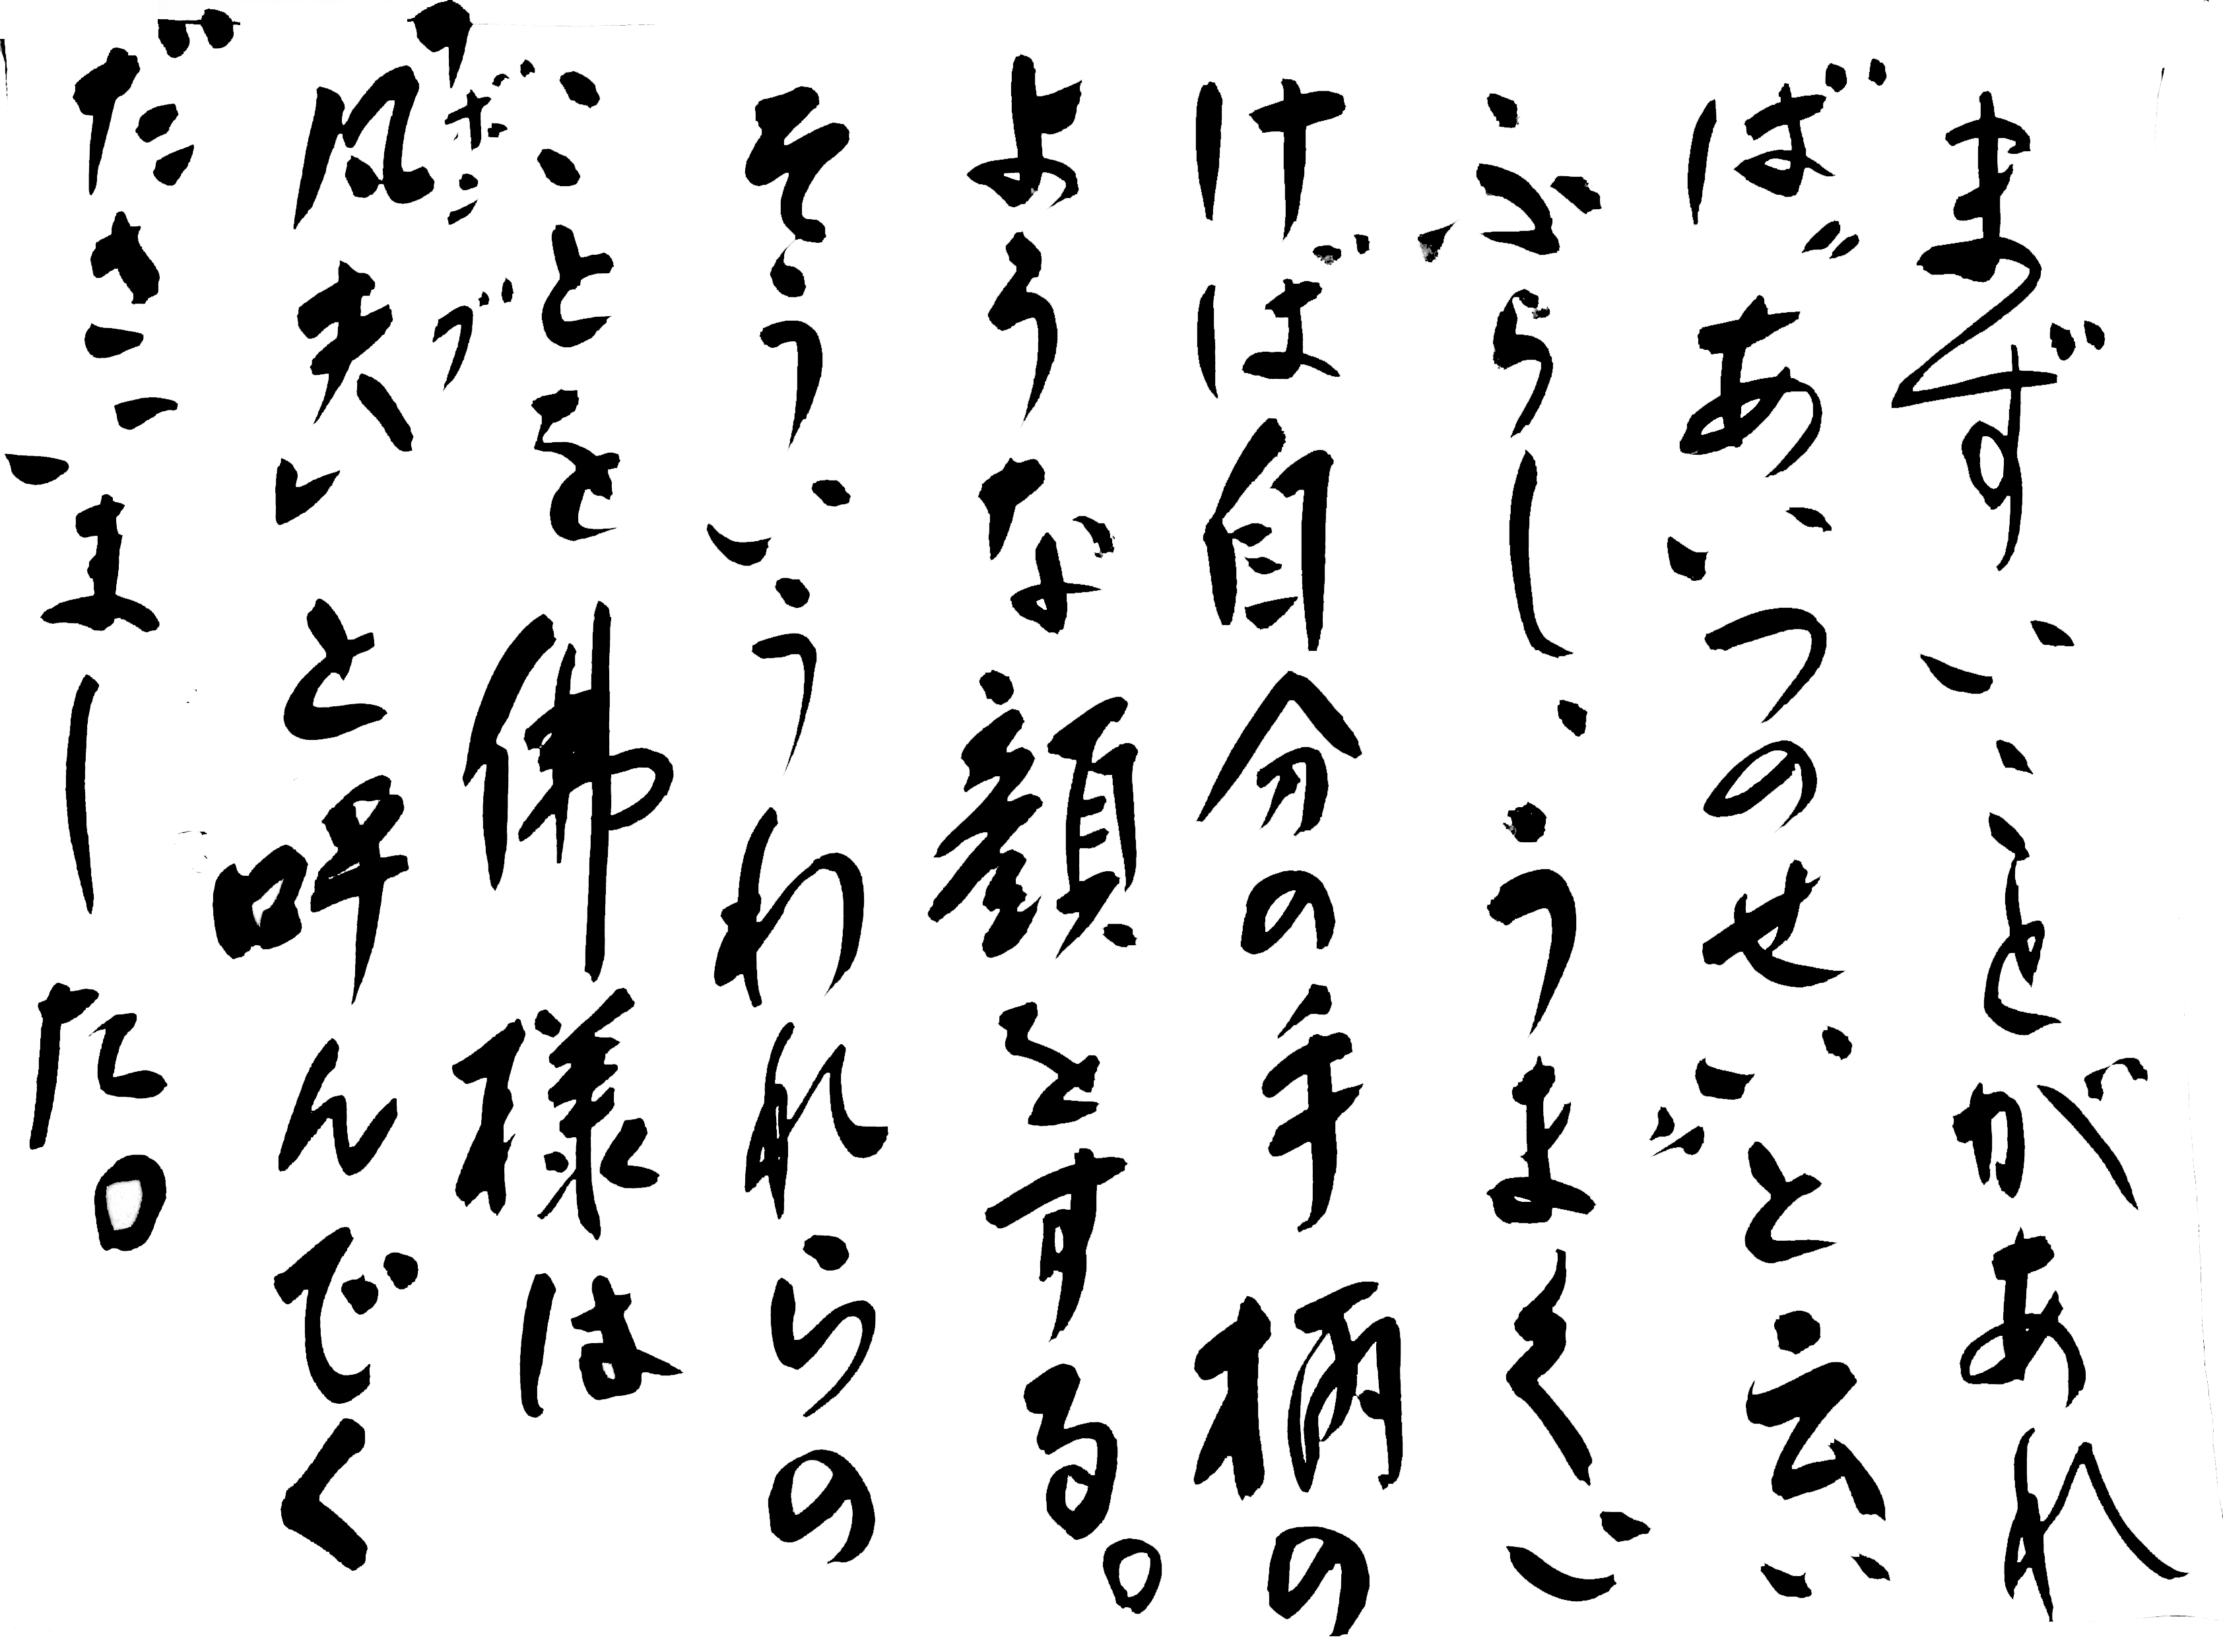 まずいことがあれ
ば、あいつのせいと云い
ふらし、うまくい
けば自分の手柄の
ような顔をする。
そういうわれらの
ことを佛様は
ボンブ
凡夫と呼んでく
ださいました。